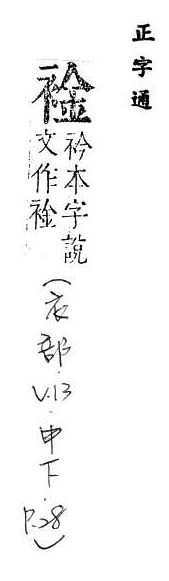 正字通
䘳
衿本字說
文作䘳
(衣部.V.13.申下.P.28)